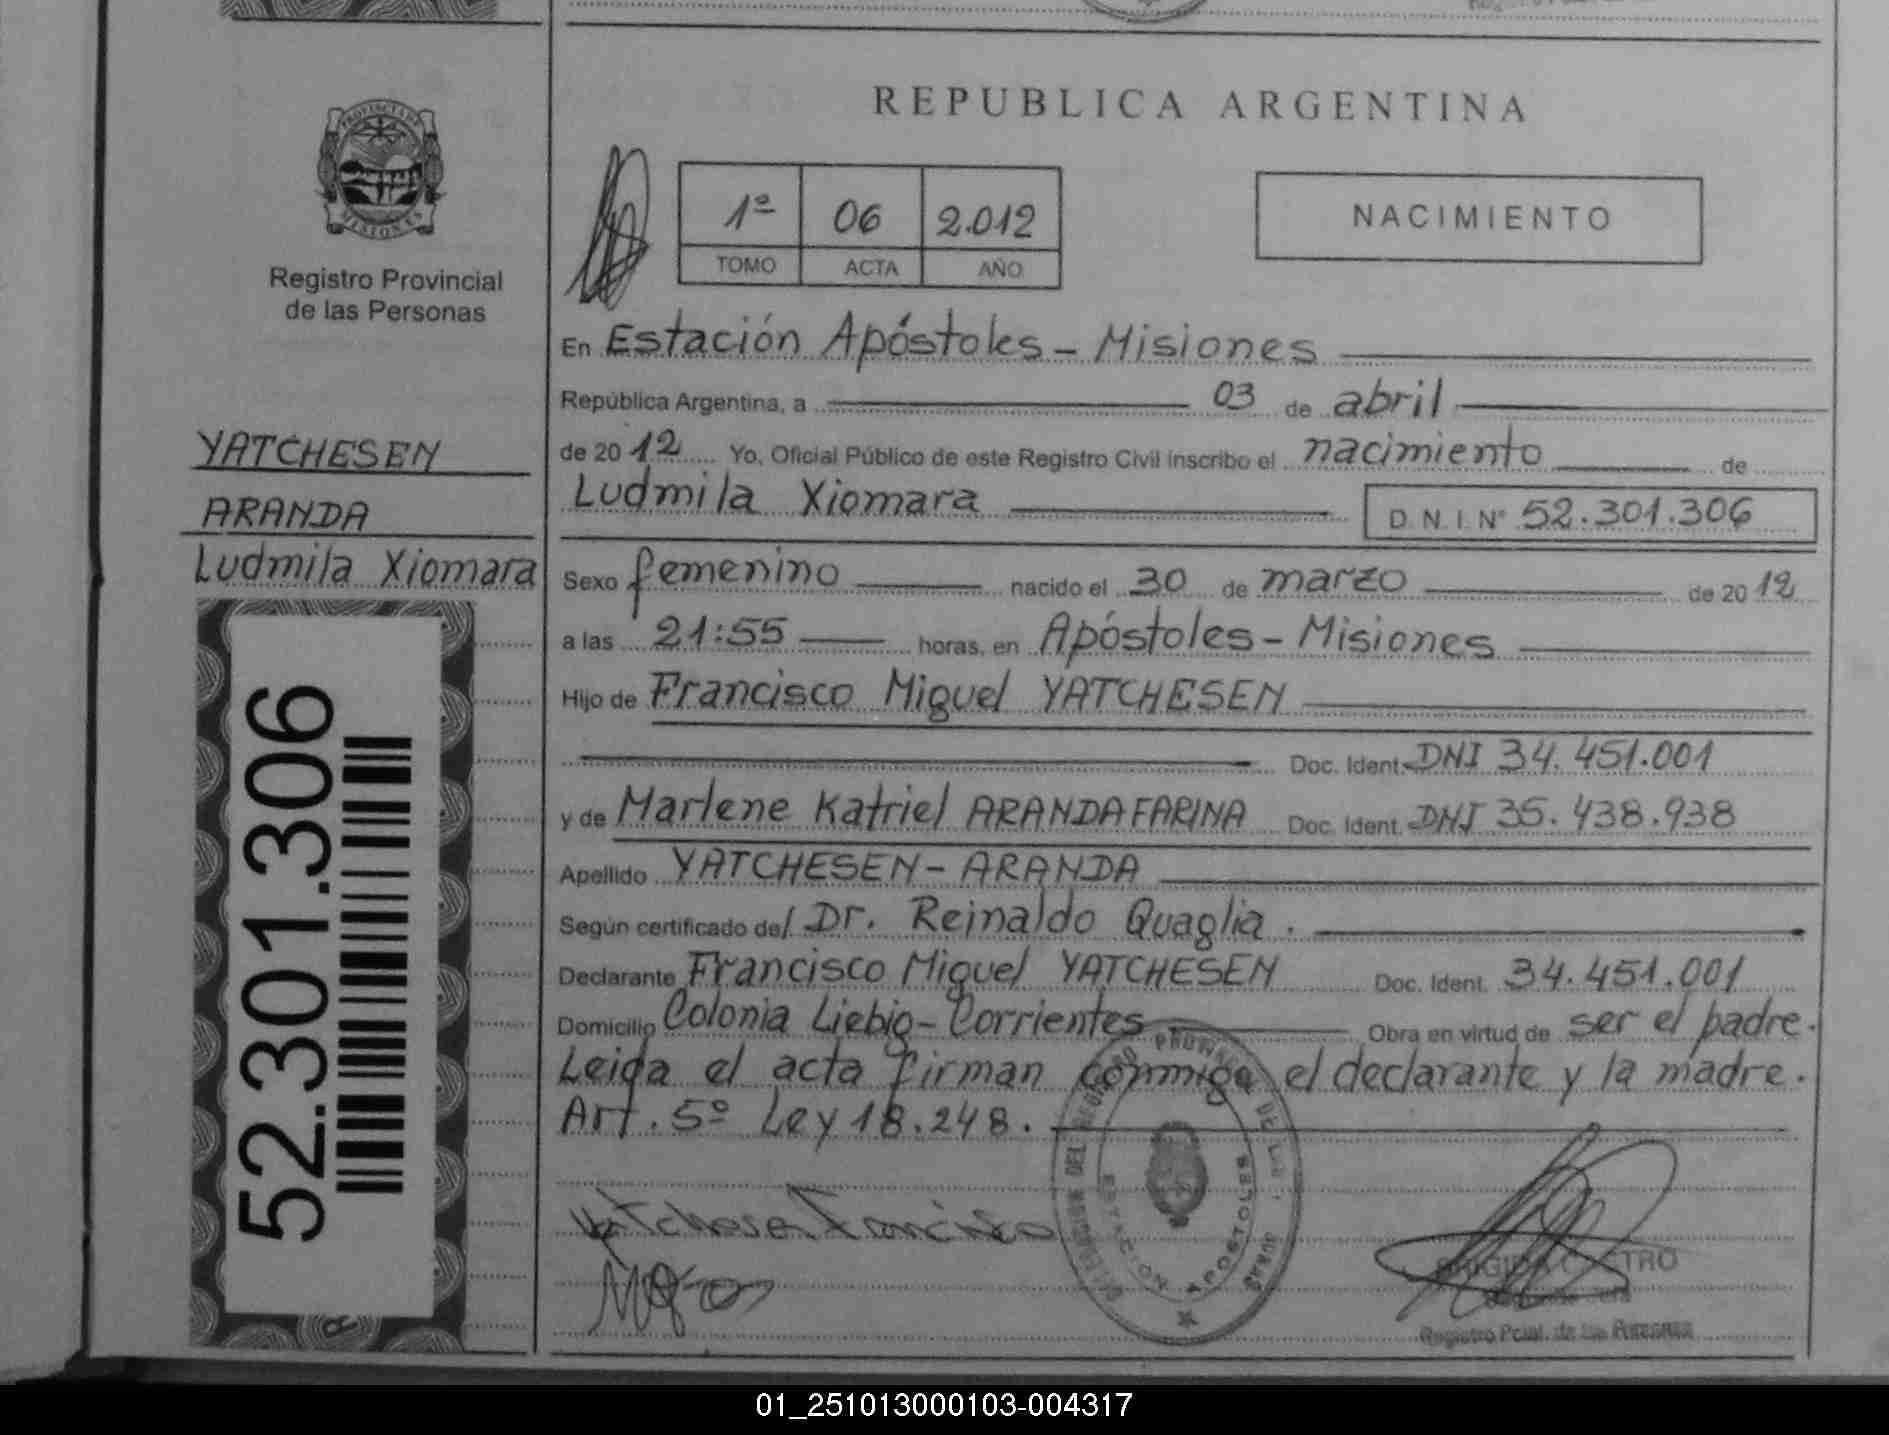 REPUBLICA ARGENTINA
PROVINCIA DE
MISIONES
Registro Provincial
de las Personas
1º 06 2.012
TOMO ACTA AÑO
NACIMIENTO
YATCHESEN
ARANDA
Ludmila Xiomara
52.301.306
En Estación Apóstoles - Misiones
República Argentina, a 03 de abril
de 2012 Yo, Oficial Público de este Registro Civil inscribo el nacimiento de
Ludmila Xiomara D.N.I. Nº 52.301.306
Sexo femenino nacido el 30 de marzo de 2012
a las 21:55 horas, en Apóstoles - Misiones
Hijo de Francisco Miguel YATCHESEN
Doc. Ident. DNI 34.451.001
y de Marlene Katriel ARANDA FARINA Doc. Ident. DNI 35.438.938
Apellido YATCHESEN - ARANDA
Según certificado del Dr. Reinaldo Quaglia.
Declarante Francisco Miguel YATCHESEN Doc. Ident. 34.451.001
Domicilio Colonia Liebig - Corrientes Obra en virtud de ser el padre.
Leida el acta firman conmigo el declarante y la madre.
Art. 5º Ley 18.248.
Yatchesen Francisco
ESTACION APOSTOLES
BRIGIDA CASTRO
Registro Pcial. de las Personas
01_251013000103-004317